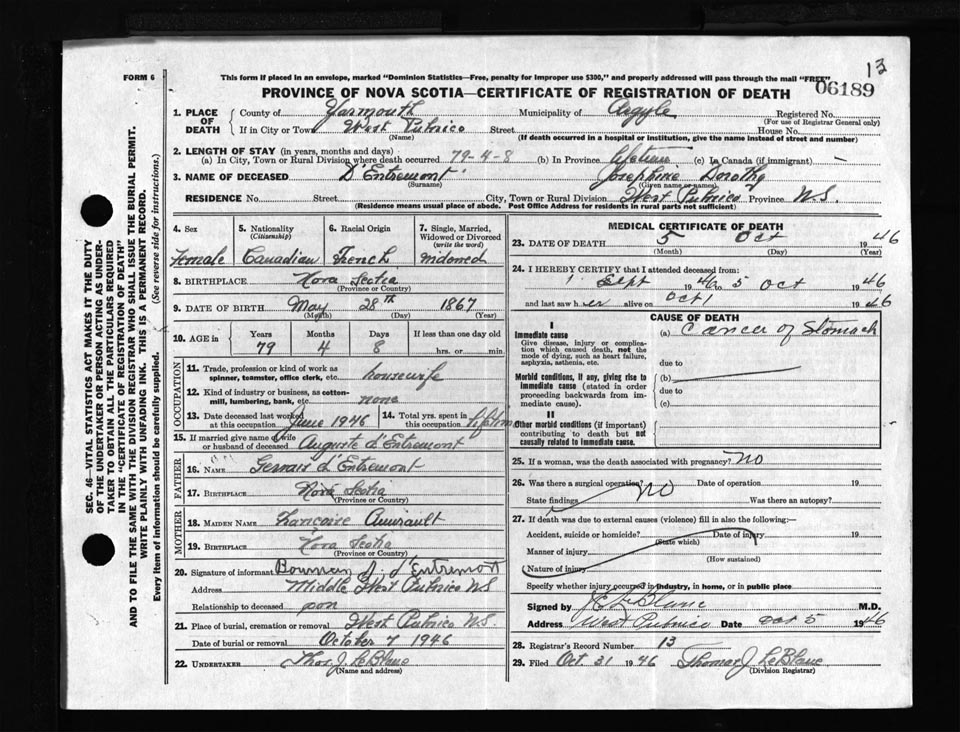 13
FORM 6
This form if placed in an envelope, marked "Dominion Statistics—Free, penalty for improper use $300," and properly addressed will pass through the mail "FREE"
06189
PROVINCE OF NOVA SCOTIA—CERTIFICATE OF REGISTRATION OF DEATH
SEC. 46—VITAL STATISTICS ACT MAKES IT THE DUTY
OF THE UNDERTAKER OR PERSON ACTING AS UNDER-
TAKER TO OBTAIN ALL THE PARTICULARS REQUIRED
IN THE "CERTIFICATE OF REGISTRATION OF DEATH"
AND TO FILE THE SAME WITH THE DIVISION REGISTRAR WHO SHALL ISSUE THE BURIAL PERMIT.
WRITE PLAINLY WITH UNFADING INK. THIS IS A PERMANENT RECORD.
Every item of information should be carefully supplied. (See reverse side for instructions.)
1. PLACE OF DEATH County of Yarmouth Municipality of Argyle Registered No.
(For use of Registrar General only)
If in City or Town West Pubnico Street House No.
(Name) (If death occurred in a hospital or institution, give the name instead of street and number)
2. LENGTH OF STAY (in years, months and days)
(a) In City, Town or Rural Division where death occurred 79-4-8 (b) In Province lifetime (c) In Canada (if immigrant) —
3. NAME OF DECEASED D'Entremont Josephine Dorothy
(Surname) (Given name or names)
RESIDENCE No. Street City, Town or Rural Division West Pubnico Province N.S.
(Residence means usual place of abode. Post Office Address for residents in rural parts not sufficient)
4. Sex 5. Nationality 6. Racial Origin 7. Single, Married,
(Citizenship) Widowed or Divorced
(write the word)
female Canadian French widowed
8. BIRTHPLACE Nova Scotia
(Province or Country)
9. DATE OF BIRTH May 28th 1867
(Month) (Day) (Year)
10. AGE in Years Months Days If less than one day old
79 4 8 hrs. or min.
OCCUPATION
11. Trade, profession or kind of work as housewife
spinner, teamster, office clerk, etc.
12. Kind of industry or business, as cotton- none
mill, lumbering, bank, etc.
13. Date deceased last worked at this occupation June 1946 14. Total yrs. spent in this occupation lifetime
15. If married give name of wife or husband of deceased Auguste d'Entremont
FATHER
16. NAME d'Entremont
17. BIRTHPLACE Nova Scotia
(Province or Country)
MOTHER
18. MAIDEN NAME Amirault
19. BIRTHPLACE Nova Scotia
(Province or Country)
20. Signature of informant J. d'Entremont
Address Middle West Pubnico NS
Relationship to deceased son
21. Place of burial, cremation or removal West Pubnico N.S.
Date of burial or removal October 7 1946
22. UNDERTAKER Thos J. LeBlanc
(Name and address)
MEDICAL CERTIFICATE OF DEATH
23. DATE OF DEATH 5 Oct 1946
(Month) (Day) (Year)
24. I HEREBY CERTIFY that I attended deceased from:
1 Sept 1946 5 Oct 1946
and last saw her alive on Oct 1 1946
CAUSE OF DEATH
I
Immediate cause (a) Cancer of Stomach
Give disease, injury or complica-
tion which caused death, not the
mode of dying, such as heart failure,
asphyxia, asthenia, etc. due to
Morbid conditions, if any, giving rise to (b)
immediate cause (stated in order due to
proceeding backwards from im-
mediate cause) (c)
II
Other morbid conditions (if important)
contributing to death but not
causally related to immediate cause
25. If a woman, was the death associated with pregnancy? No
26. Was there a surgical operation? No Date of operation 19
State findings Was there an autopsy?
27. If death was due to external causes (violence) fill in also the following:—
Accident, suicide or homicide? Date of injury 19
(State which)
Manner of injury
(How sustained)
Nature of injury
Specify whether injury occurred in industry, in home, or in public place
Signed by LeBlanc M.D.
Address West Pubnico Date Oct 5 1946
28. Registrar's Record Number 13
29. Filed Oct. 31 1946 Thomas J LeBlanc
(Division Registrar)